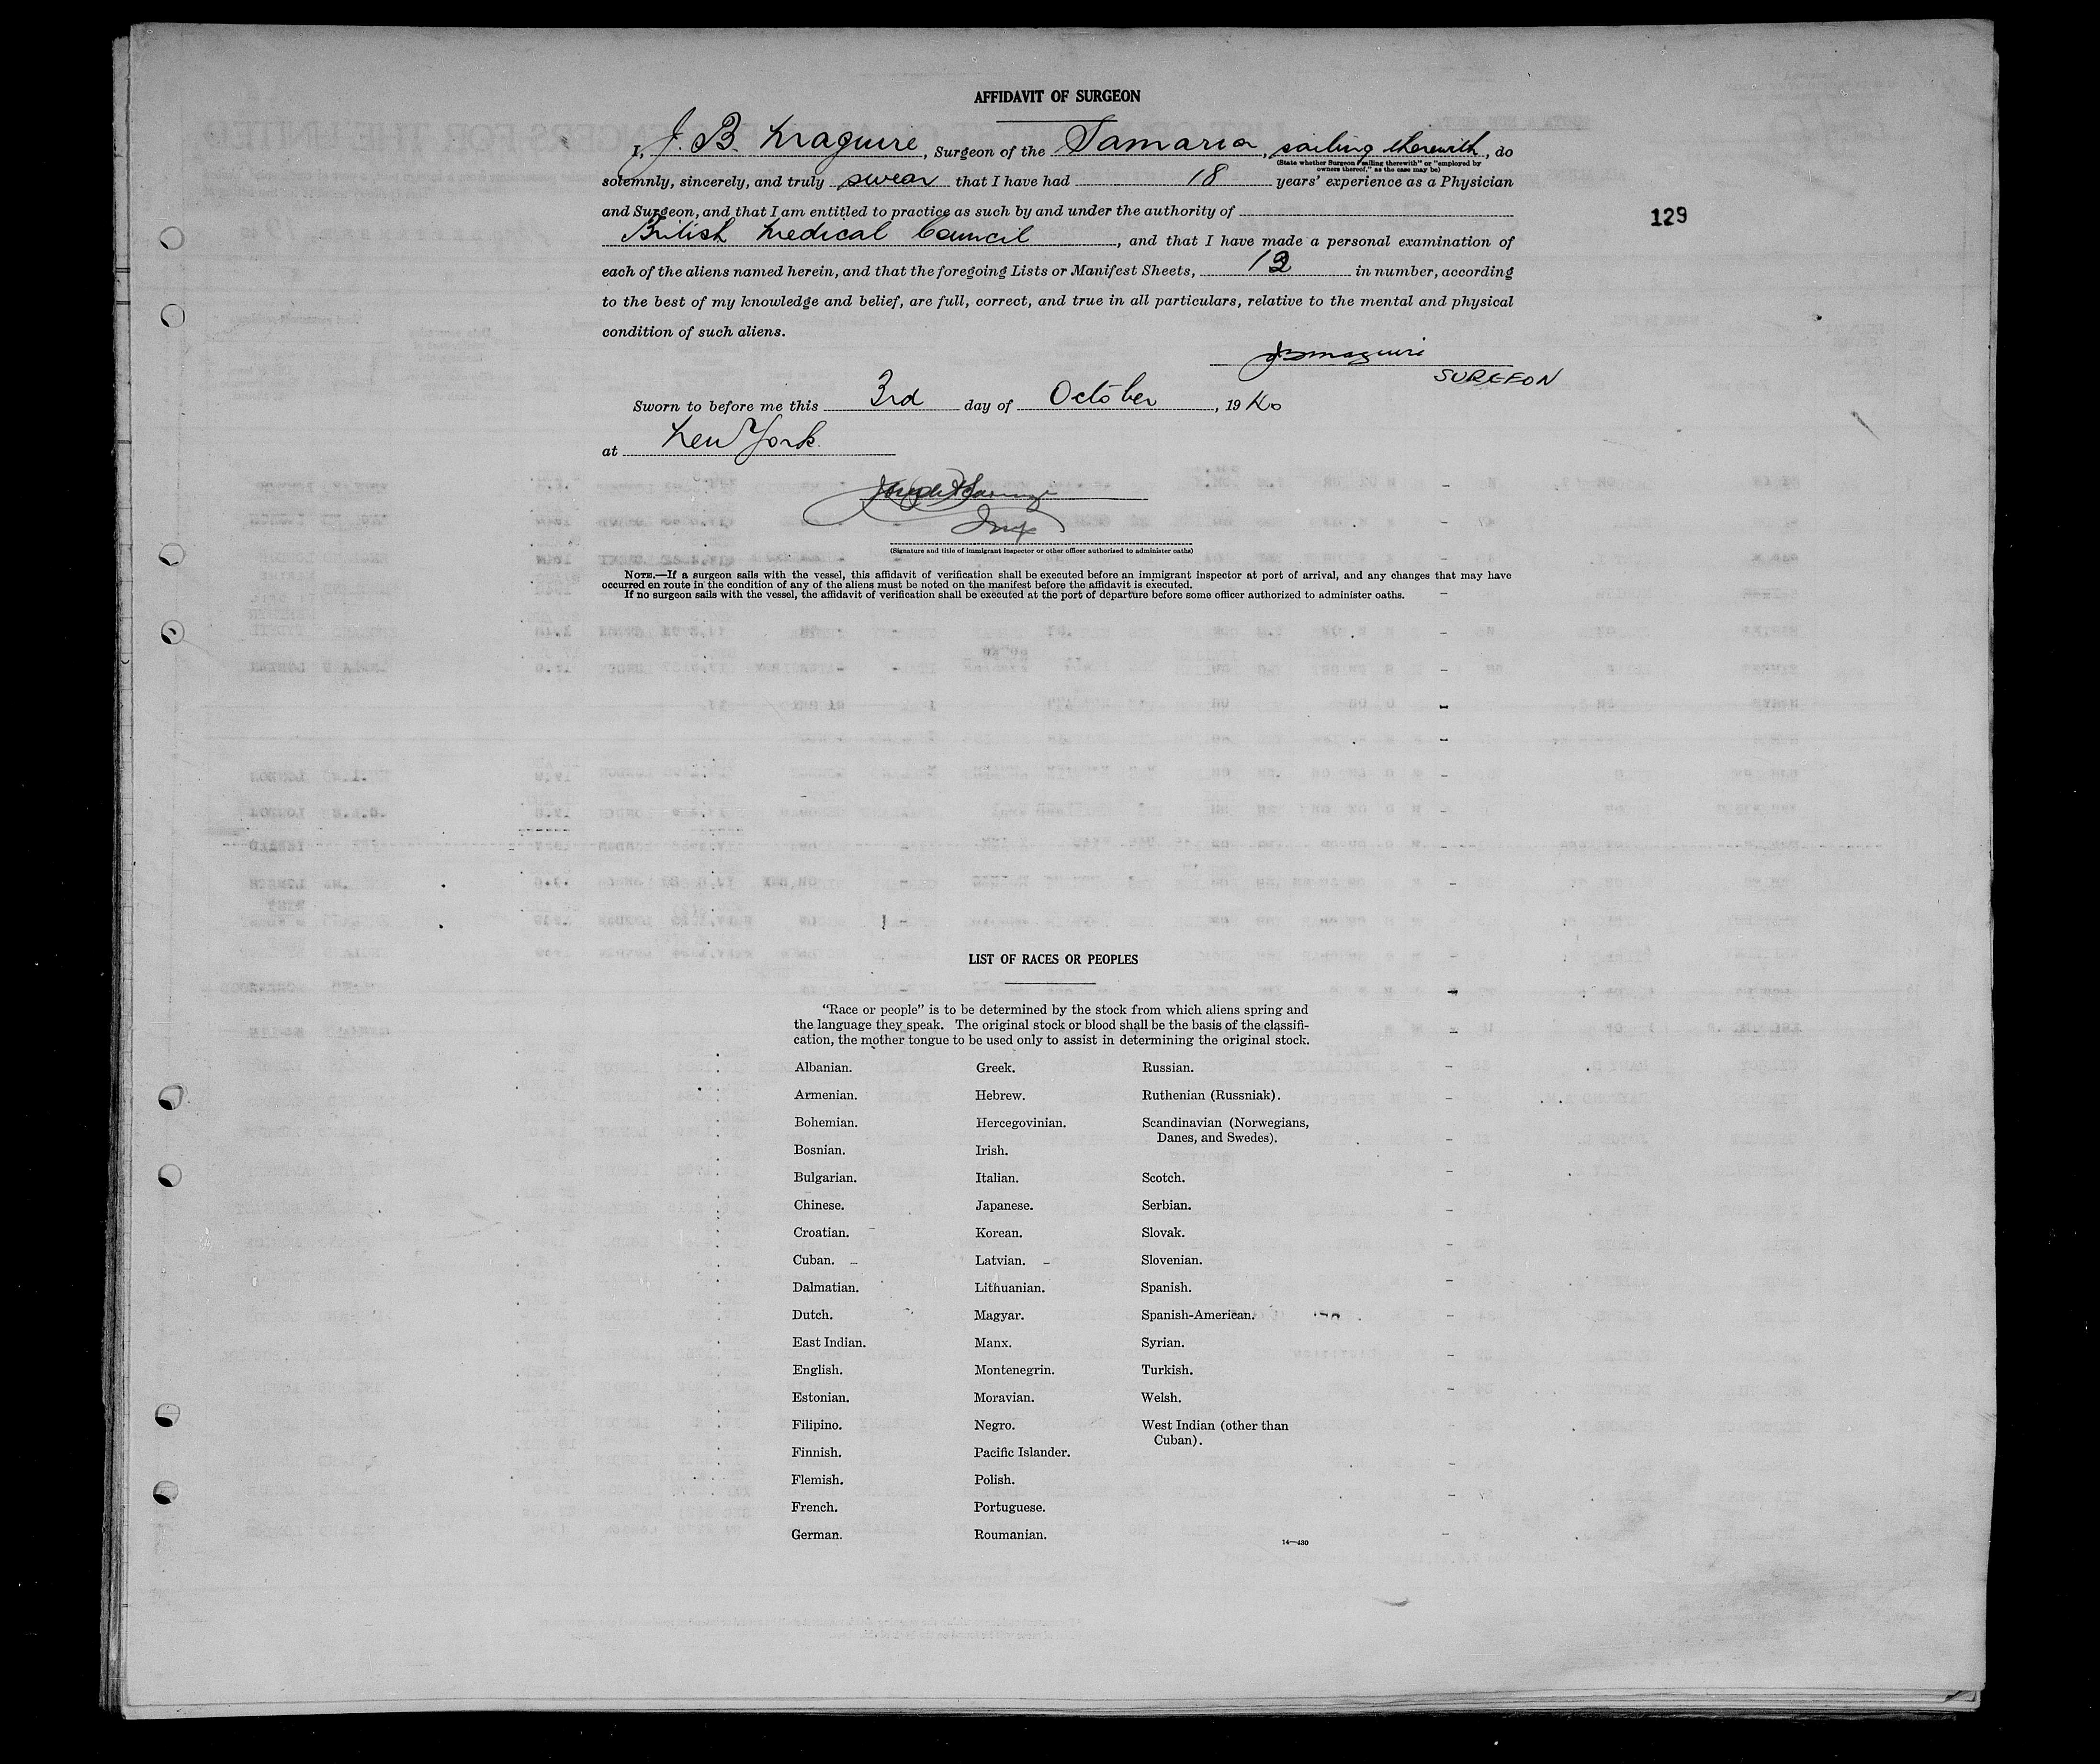 AFFIDAVIT OF SURGEON
I, J. B. Maguire, Surgeon of the Samaria, sailing therewith, do
(State whether Surgeon "sailing therewith" or "employed by
owners thereof," as the case may be)
solemnly, sincerely, and truly swear that I have had 18 years' experience as a Physician
and Surgeon, and that I am entitled to practice as such by and under the authority of
129
British Medical Council, and that I have made a personal examination of
each of the aliens named herein, and that the foregoing Lists or Manifest Sheets, in number, according
to the best of my knowledge and belief, are full, correct, and true in all particulars, relative to the mental and physical
condition of such aliens.
JBMaguire
SURGEON
Sworn to before me this 3rd day of October, 1940
at New York.
Insp
(Signature and title of immigrant inspector or other officer authorized to administer oaths)
NOTE.—If a surgeon sails with the vessel, this affidavit of verification shall be executed before an immigrant inspector at port of arrival, and any changes that may have
occurred en route in the condition of any of the aliens must be noted on the manifest before the affidavit is executed.
If no surgeon sails with the vessel, the affidavit of verification shall be executed at the port of departure before some officer authorized to administer oaths.
LIST OF RACES OR PEOPLES
"Race or people" is to be determined by the stock from which aliens spring and
the language they speak. The original stock or blood shall be the basis of the classifi-
cation, the mother tongue to be used only to assist in determining the original stock.
Albanian.
Armenian.
Bohemian.
Bosnian.
Bulgarian.
Chinese.
Croatian.
Cuban.
Dalmatian.
Dutch.
East Indian.
English.
Estonian.
Filipino.
Finnish.
Flemish.
French.
German.
Greek.
Hebrew.
Hercegovinian.
Irish.
Italian.
Japanese.
Korean.
Latvian.
Lithuanian.
Magyar.
Manx.
Montenegrin.
Moravian.
Negro.
Pacific Islander.
Polish.
Portuguese.
Roumanian.
Russian.
Ruthenian (Russniak).
Scandinavian (Norwegians,
Danes, and Swedes).
Scotch.
Serbian.
Slovak.
Slovenian.
Spanish.
Spanish-American.
Syrian.
Turkish.
Welsh.
West Indian (other than
Cuban).
14—430